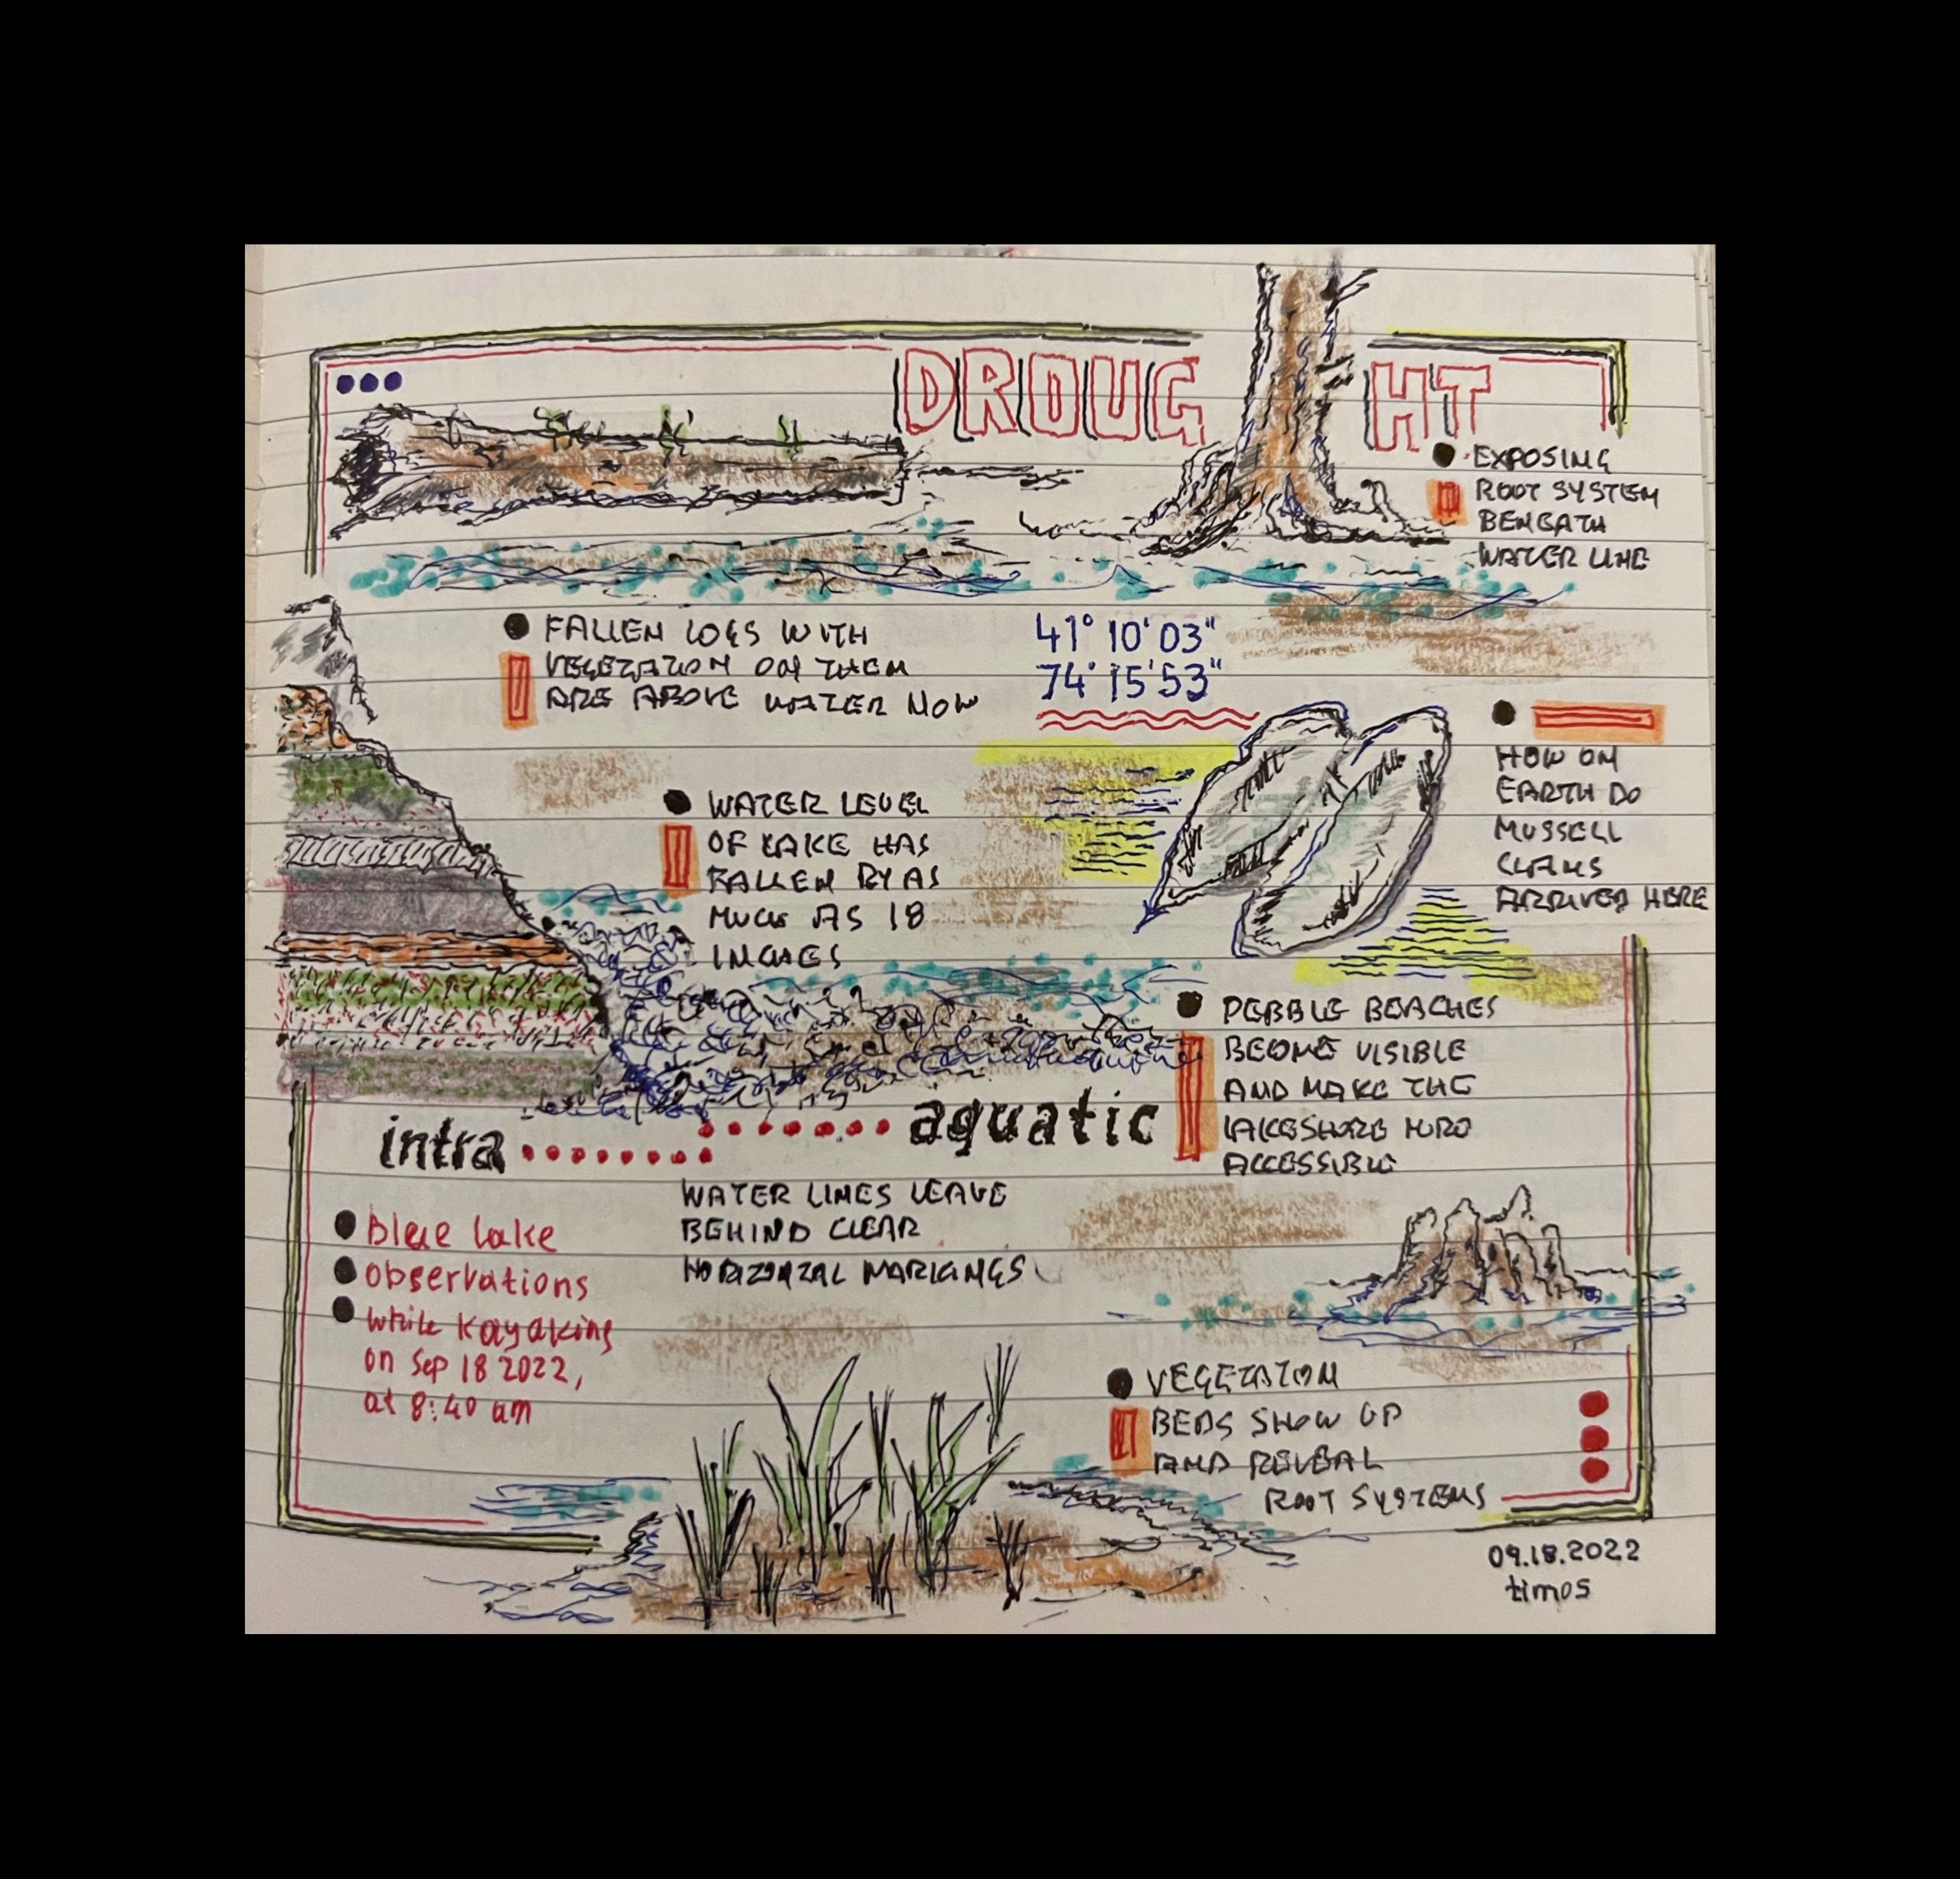 DROUGHT
• EXPOSING
ROOT SYSTEM
BENEATH
WATER LINE
• FALLEN LOGS WITH
VEGETATION ON THEM
ARE ABOVE WATER NOW
41° 10' 03"
74° 15' 53"
• HOW ON
EARTH DO
MUSSELL
CLAMS
ARRIVED HERE
• WATER LEVEL
OF LAKE HAS
FALLEN BY AS
MUCH AS 18
INCHES
• PEBBLE BEACHES
BECOME VISIBLE
AND MAKE THE
LAKESHORE MORE
ACCESSIBLE
intra ............... aquatic
WATER LINES LEAVE
BEHIND CLEAR
HORIZONTAL MARKINGS
• Blue Lake
• Observations
• While Kayaking
on Sep 18 2022,
at 8:40 am
• VEGETATION
BEDS SHOW UP
AND REVEAL
ROOT SYSTEMS
09.18.2022
timos